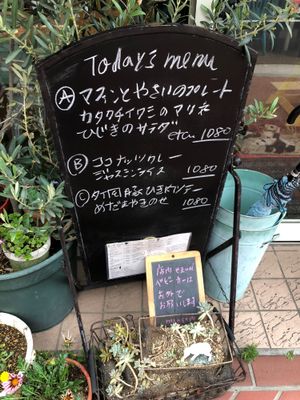 Today's menu
Ⓐ マフィンとやさいのプレート
カタクチイワシのマリネ
ひじきのサラダ
etc 1080
Ⓑ ココナッツカレー
ジャスミンライス 1080
Ⓒ タイ風豚ひきカレー
めだまやきのせ 1080
店内せまい為
ベビーカーは
おもてで
お願いします